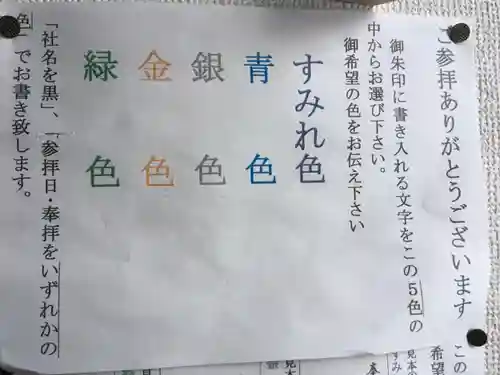 ご参拝ありがとうございます
御朱印に書き入れる文字をこの5色の
中からお選び下さい。
御希望の色をお伝え下さい
すみれ色
青色
銀色
金色
緑色
「社名を黒」、「参拝日・奉拝をいずれかの
色」でお書き致します。
この
希望
見本
すみ
見本